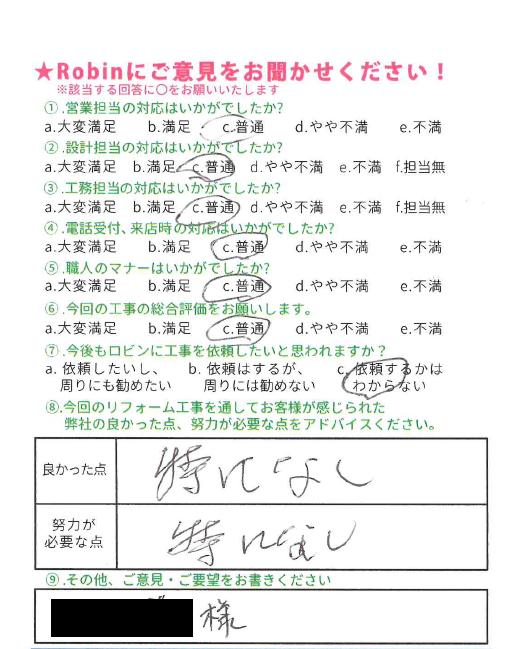 ★Robinにご意見をお聞かせください！
※該当する回答に〇をお願いいたします
①.営業担当の対応はいかがでしたか?
a.大変満足 b.満足 c.普通 d.やや不満 e.不満
②.設計担当の対応はいかがでしたか?
a.大変満足 b.満足 c.普通 d.やや不満 e.不満 f.担当無
③.工務担当の対応はいかがでしたか?
a.大変満足 b.満足 c.普通 d.やや不満 e.不満 f.担当無
④.電話受付、来店時の対応はいかがでしたか?
a.大変満足 b.満足 c.普通 d.やや不満 e.不満
⑤.職人のマナーはいかがでしたか?
a.大変満足 b.満足 c.普通 d.やや不満 e.不満
⑥.今回の工事の総合評価をお願いします。
a.大変満足 b.満足 c.普通 d.やや不満 e.不満
⑦.今後もロビンに工事を依頼したいと思われますか？
a. 依頼したいし、 b. 依頼はするが、 c. 依頼するかは
周りにも勧めたい 周りには勧めない わからない
⑧.今回のリフォーム工事を通してお客様が感じられた
弊社の良かった点、努力が必要な点をアドバイスください。
良かった点 特になし
努力が
必要な点 特になし
⑨.その他、ご意見・ご要望をお書きください
様